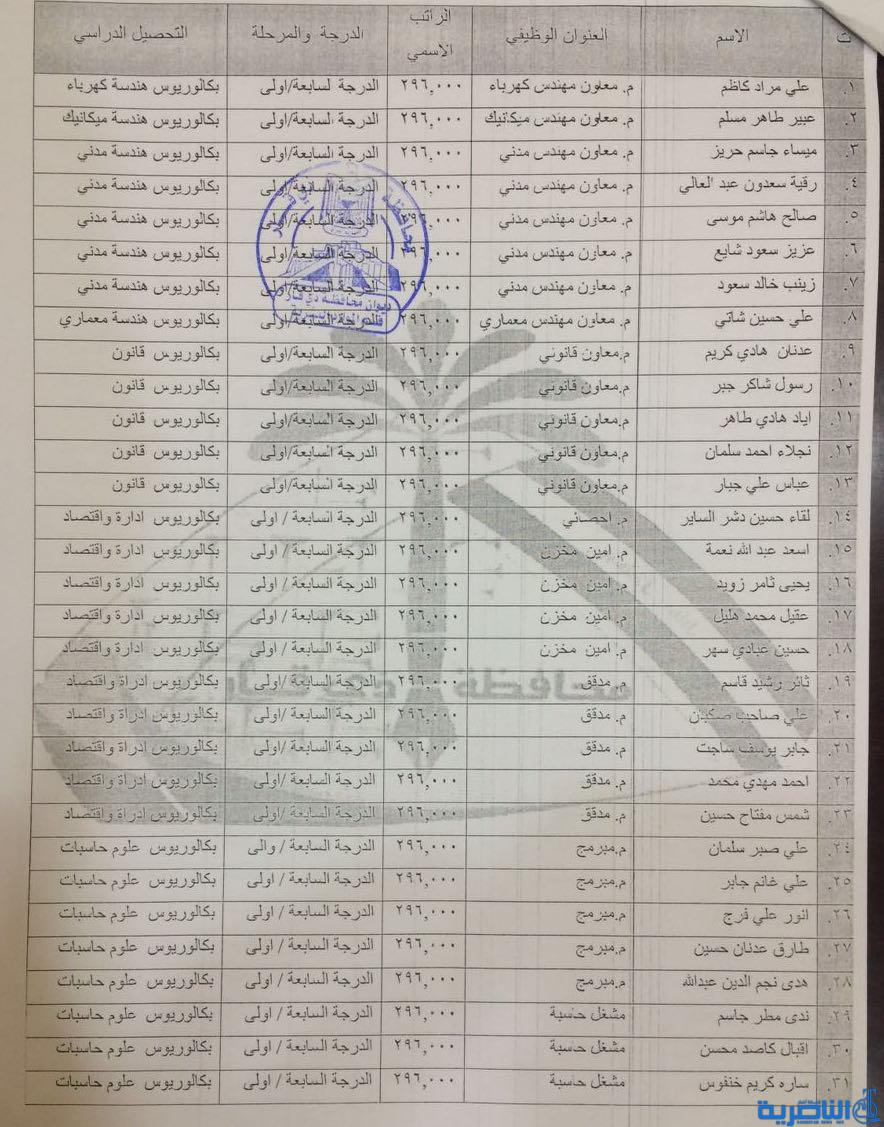 ت الاسم العنوان الوظيفي الراتب الاسمي الدرجة والمرحلة التحصيل الدراسي
١. علي مراد كاظم م. معاون مهندس كهرباء ٢٩٦,٠٠٠ الدرجة لسابعة/اولى بكالوريوس هندسة كهرباء
٢. عبير طاهر مسلم م. معاون مهندس ميكانيك ٢٩٦,٠٠٠ الدرجة السابعة/اولى بكالوريوس هندسة ميكانيك
٣. ميساء جاسم حريز م. معاون مهندس مدني ٢٩٦,٠٠٠ الدرجة السابعة/اولى بكالوريوس هندسة مدني
٤. رقية سعدون عبد العالي م. معاون مهندس مدني ٢٩٦,٠٠٠ الدرجة السابعة/اولى بكالوريوس هندسة مدني
٥. صالح هاشم موسى م. معاون مهندس مدني ٢٩٦,٠٠٠ الدرجة السابعة/اولى بكالوريوس هندسة مدني
٦. عزيز سعود شايع م. معاون مهندس مدني ٢٩٦,٠٠٠ الدرجة السابعة/اولى بكالوريوس هندسة مدني
٧. زينب خالد سعود م. معاون مهندس مدني ٢٩٦,٠٠٠ الدرجة السابعة/اولى بكالوريوس هندسة مدني
٨. علي حسين شاتي م. معاون مهندس معماري ٢٩٦,٠٠٠ الدرجة السابعة/اولى بكالوريوس هندسة معماري
٩. عدنان هادي كريم م.معاون قانوني ٢٩٦,٠٠٠ الدرجة السابعة/اولى بكالوريوس قانون
١٠. رسول شاكر جبر م.معاون قانوني ٢٩٦,٠٠٠ الدرجة السابعة/اولى بكالوريوس قانون
١١. اياد هادي طاهر م.معاون قانوني ٢٩٦,٠٠٠ الدرجة السابعة/اولى بكالوريوس قانون
١٢. نجلاء احمد سلمان م.معاون قانوني ٢٩٦,٠٠٠ الدرجة السابعة/اولى بكالوريوس قانون
١٣. عباس علي جبار م.معاون قانوني ٢٩٦,٠٠٠ الدرجة السابعة/اولى بكالوريوس قانون
١٤. لقاء حسين دشر الساير م. احصائي ٢٩٦,٠٠٠ الدرجة السابعة / اولى بكالوريوس ادارة واقتصاد
١٥. اسعد عبد الله نعمة م. امين مخزن ٢٩٦,٠٠٠ الدرجة السابعة / اولى بكالوريوس ادارة واقتصاد
١٦. يحيى ثامر زويد م. امين مخزن ٢٩٦,٠٠٠ الدرجة السابعة / اولى بكالوريوس ادارة واقتصاد
١٧. عقيل محمد هليل م. امين مخزن ٢٩٦,٠٠٠ الدرجة السابعة / اولى بكالوريوس ادارة واقتصاد
١٨. حسين عبادي سهر م. امين مخزن ٢٩٦,٠٠٠ الدرجة السابعة / اولى بكالوريوس ادارة واقتصاد
١٩. ثائر رشيد قاسم م. مدقق ٢٩٦,٠٠٠ الدرجة السابعة / اولى بكالوريوس ادراة واقتصاد
٢٠. علي صاحب صكبان م. مدقق ٢٩٦,٠٠٠ الدرجة السابعة / اولى بكالوريوس ادراة واقتصاد
٢١. جابر يوسف ساجت م. مدقق ٢٩٦,٠٠٠ الدرجة السابعة / اولى بكالوريوس ادراة واقتصاد
٢٢. احمد مهدي محمد م. مدقق ٢٩٦,٠٠٠ الدرجة السابعة / اولى بكالوريوس ادراة واقتصاد
٢٣. شمس مفتاح حسين م. مدقق ٢٩٦,٠٠٠ الدرجة السابعة / اولى بكالوريوس ادراة واقتصاد
٢٤. علي صبر سلمان م.مبرمج ٢٩٦,٠٠٠ الدرجة السابعة / والى بكالوريوس علوم حاسبات
٢٥. علي غانم جابر م.مبرمج ٢٩٦,٠٠٠ الدرجة السابعة / اولى بكالوريوس علوم حاسبات
٢٦. انور علي فرج م.مبرمج ٢٩٦,٠٠٠ الدرجة السابعة / اولى بكالوريوس علوم حاسبات
٢٧. طارق عدنان حسين م.مبرمج ٢٩٦,٠٠٠ الدرجة السابعة / اولى بكالوريوس علوم حاسبات
٢٨. هدى نجم الدين عبدالله م.مبرمج ٢٩٦,٠٠٠ الدرجة السابعة / اولى بكالوريوس علوم حاسبات
٢٩. ندى مطر جاسم مشغل حاسبة ٢٩٦,٠٠٠ الدرجة السابعة / اولى بكالوريوس علوم حاسبات
٣٠. اقبال كاصد محسن مشغل حاسبة ٢٩٦,٠٠٠ الدرجة السابعة / اولى بكالوريوس علوم حاسبات
٣١. ساره كريم خنفوس مشغل حاسبة ٢٩٦,٠٠٠ الدرجة السابعة / اولى بكالوريوس علوم حاسبات
محافظة ذي قار
ديوان محافظة ذي قار
الناصرية